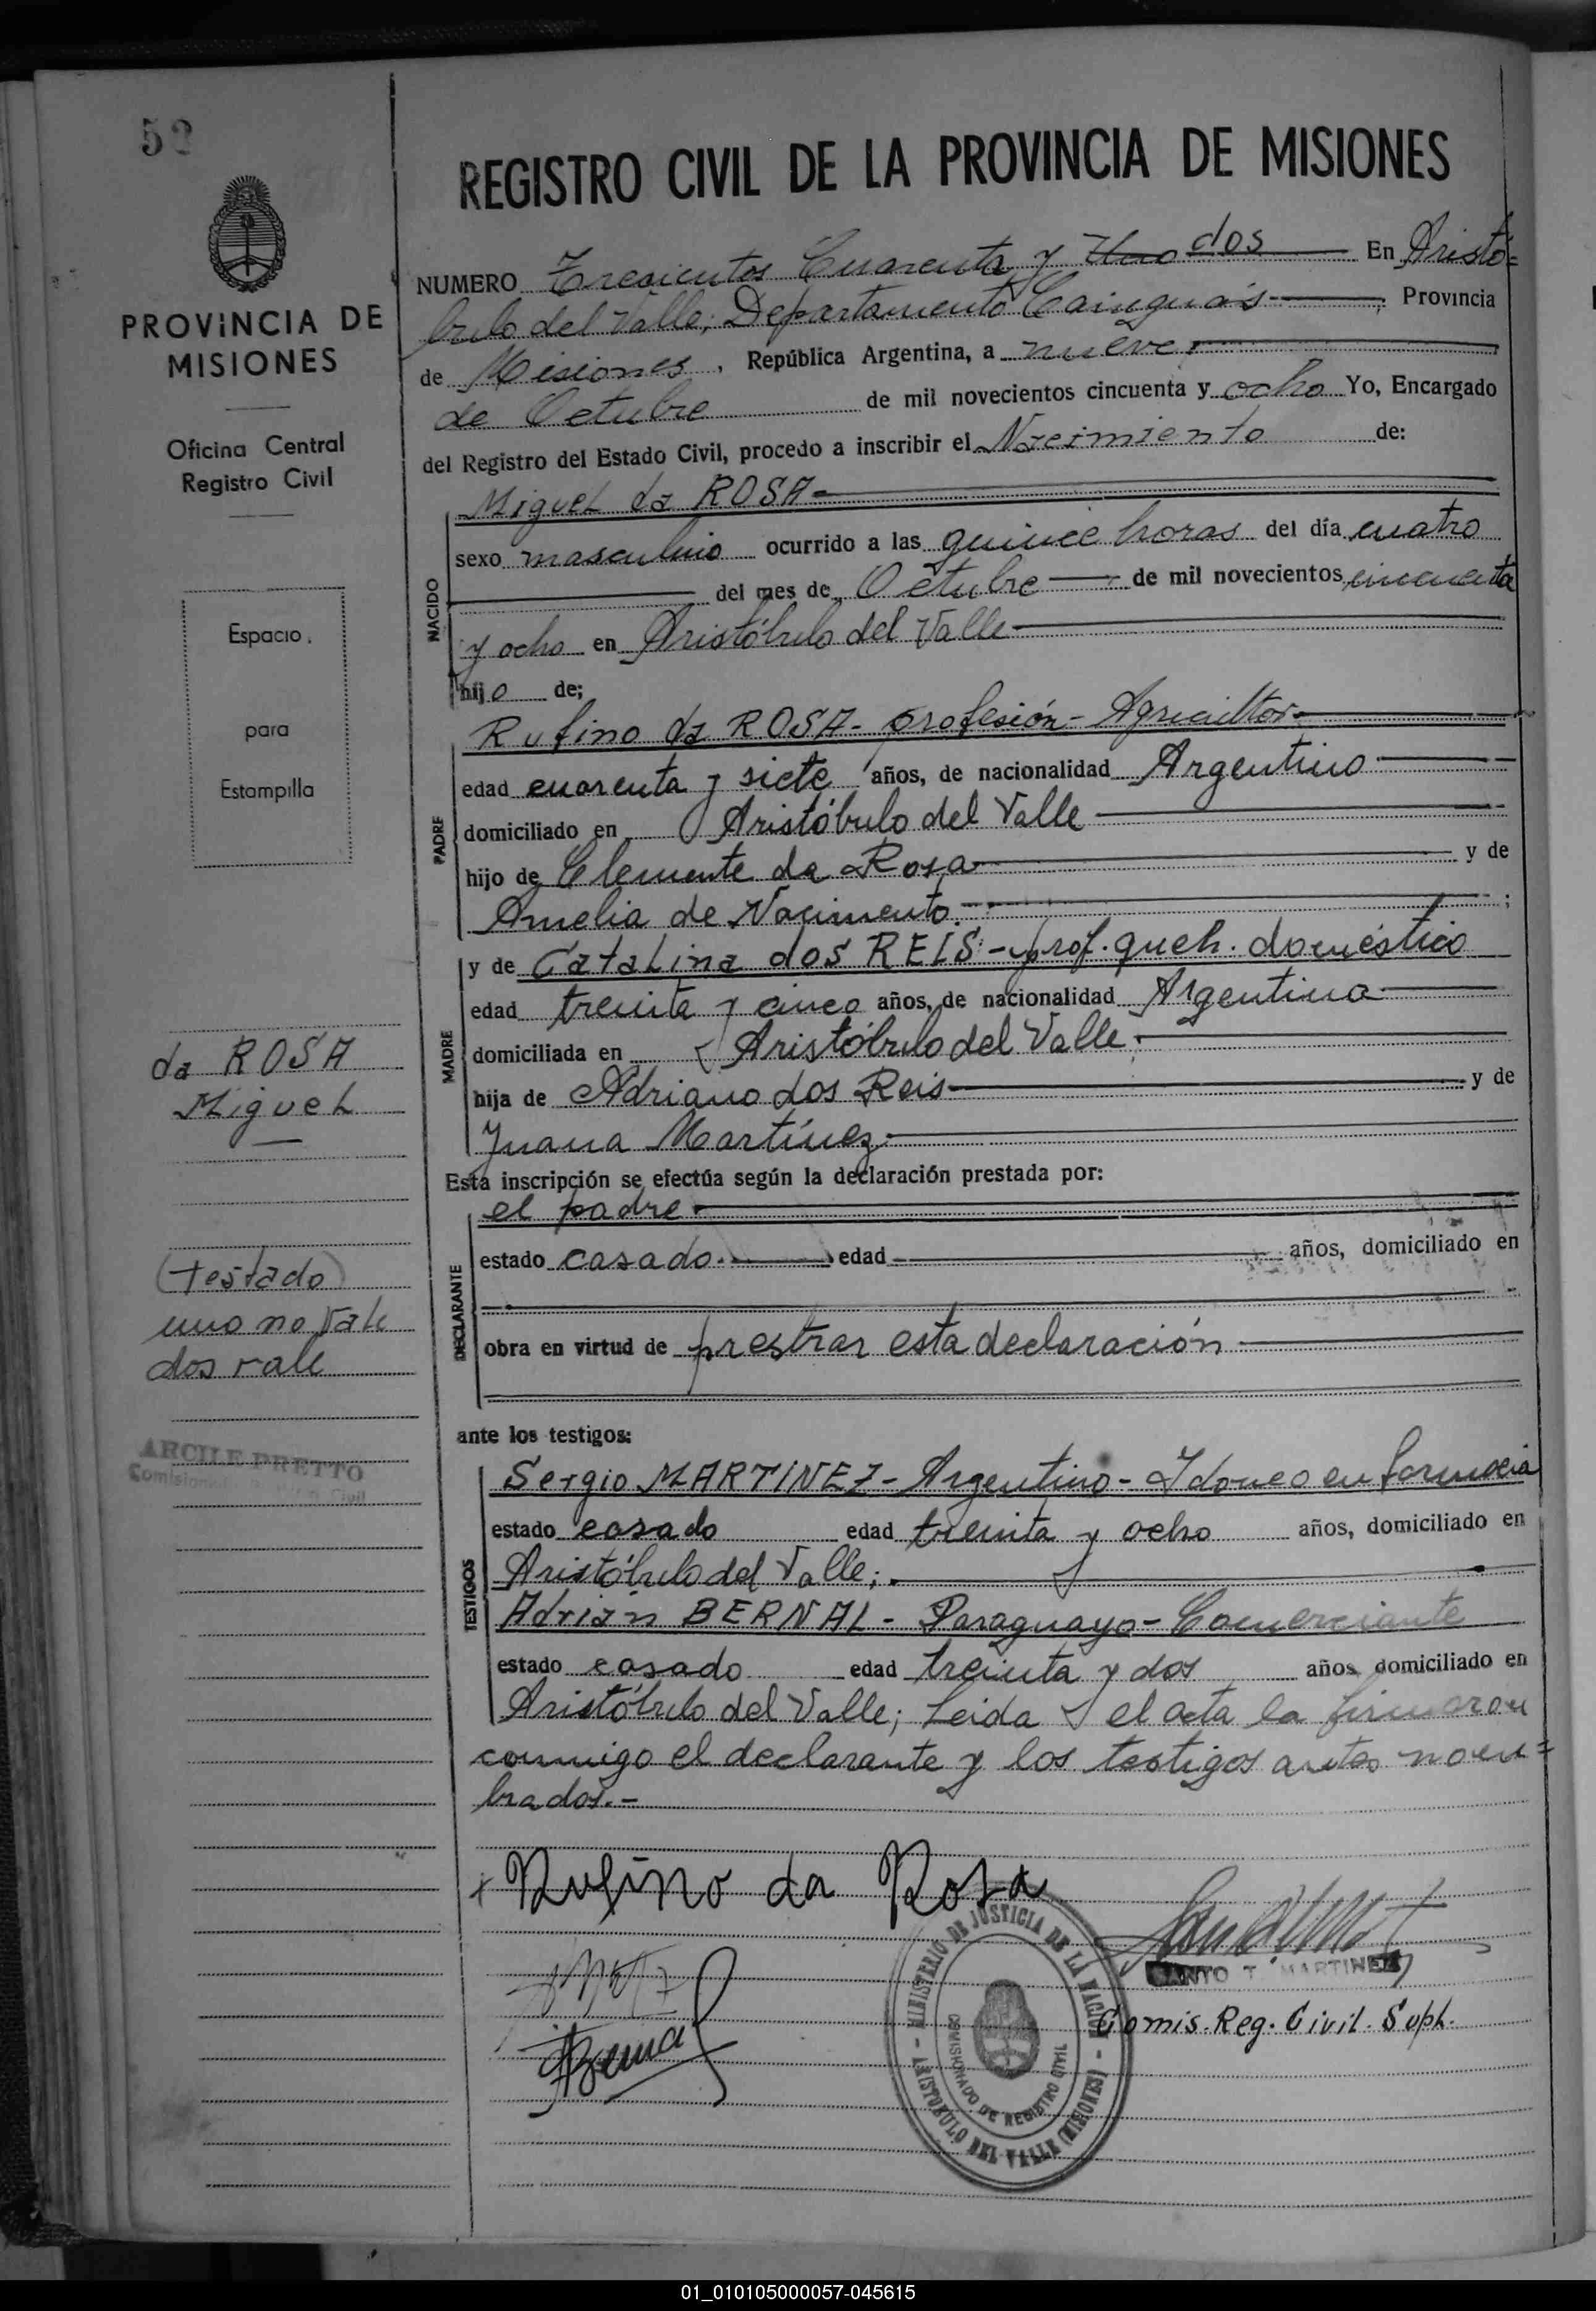 52
PROVINCIA DE
MISIONES
Oficina Central
Registro Civil
Espacio
para
Estampilla
da ROSA
Miguel
(testado)
uno no vale
dos vale
ARCILE PRETTO
Civil
REGISTRO CIVIL DE LA PROVINCIA DE MISIONES
NUMERO Trescientos Cuarenta y Uno dos En Aristó=
bulo del Valle, Departamento Cainguás Provincia
de Misiones, República Argentina, a nueve
de Octubre de mil novecientos cincuenta y ocho Yo, Encargado
del Registro del Estado Civil, procedo a inscribir el Nacimiento de:
NACIDO
Miguel da ROSA
sexo masculino ocurrido a las quince horas del día cuatro
del mes de Octubre de mil novecientos cincuenta
y ocho en Aristóbulo del Valle
hijo de;
PADRE
Rufino da ROSA - profesión - Agricultor
edad cuarenta y siete años, de nacionalidad Argentino
domiciliado en Aristóbulo del Valle
hijo de Clemente da Rosa y de
Amelia de Nacimento ;
MADRE
y de Catalina dos REIS - prof. queh. doméstico
edad treinta y cinco años, de nacionalidad Argentina
domiciliada en Aristóbulo del Valle
hija de Adriano dos Reis y de
Juana Martínez
Esta inscripción se efectúa según la declaración prestada por:
DECLARANTE
el padre
estado casado edad años, domiciliado en
obra en virtud de prestrar esta declaración
ante los testigos:
TESTIGOS
Sergio MARTINEZ - Argentino - Idoneo en farmacia
estado casado edad treinta y ocho años, domiciliado en
Aristóbulo del Valle;
Adrián BERNAL - Paraguayo - Comerciante
estado casado edad treinta y dos años domiciliado en
Aristóbulo del Valle; Leida el acta la firmaron
conmigo el declarante y los testigos antes nom=
brados.-
Rufino da Rosa
MINISTERIO DE JUSTICIA DE LA NACION
COMISIONADO DE REGISTRO CIVIL
ARISTOBULO DEL VALLE (MISIONES)
T. MARTINEZ
Comis. Reg. Civil. Supl.
01_010105000057-045615